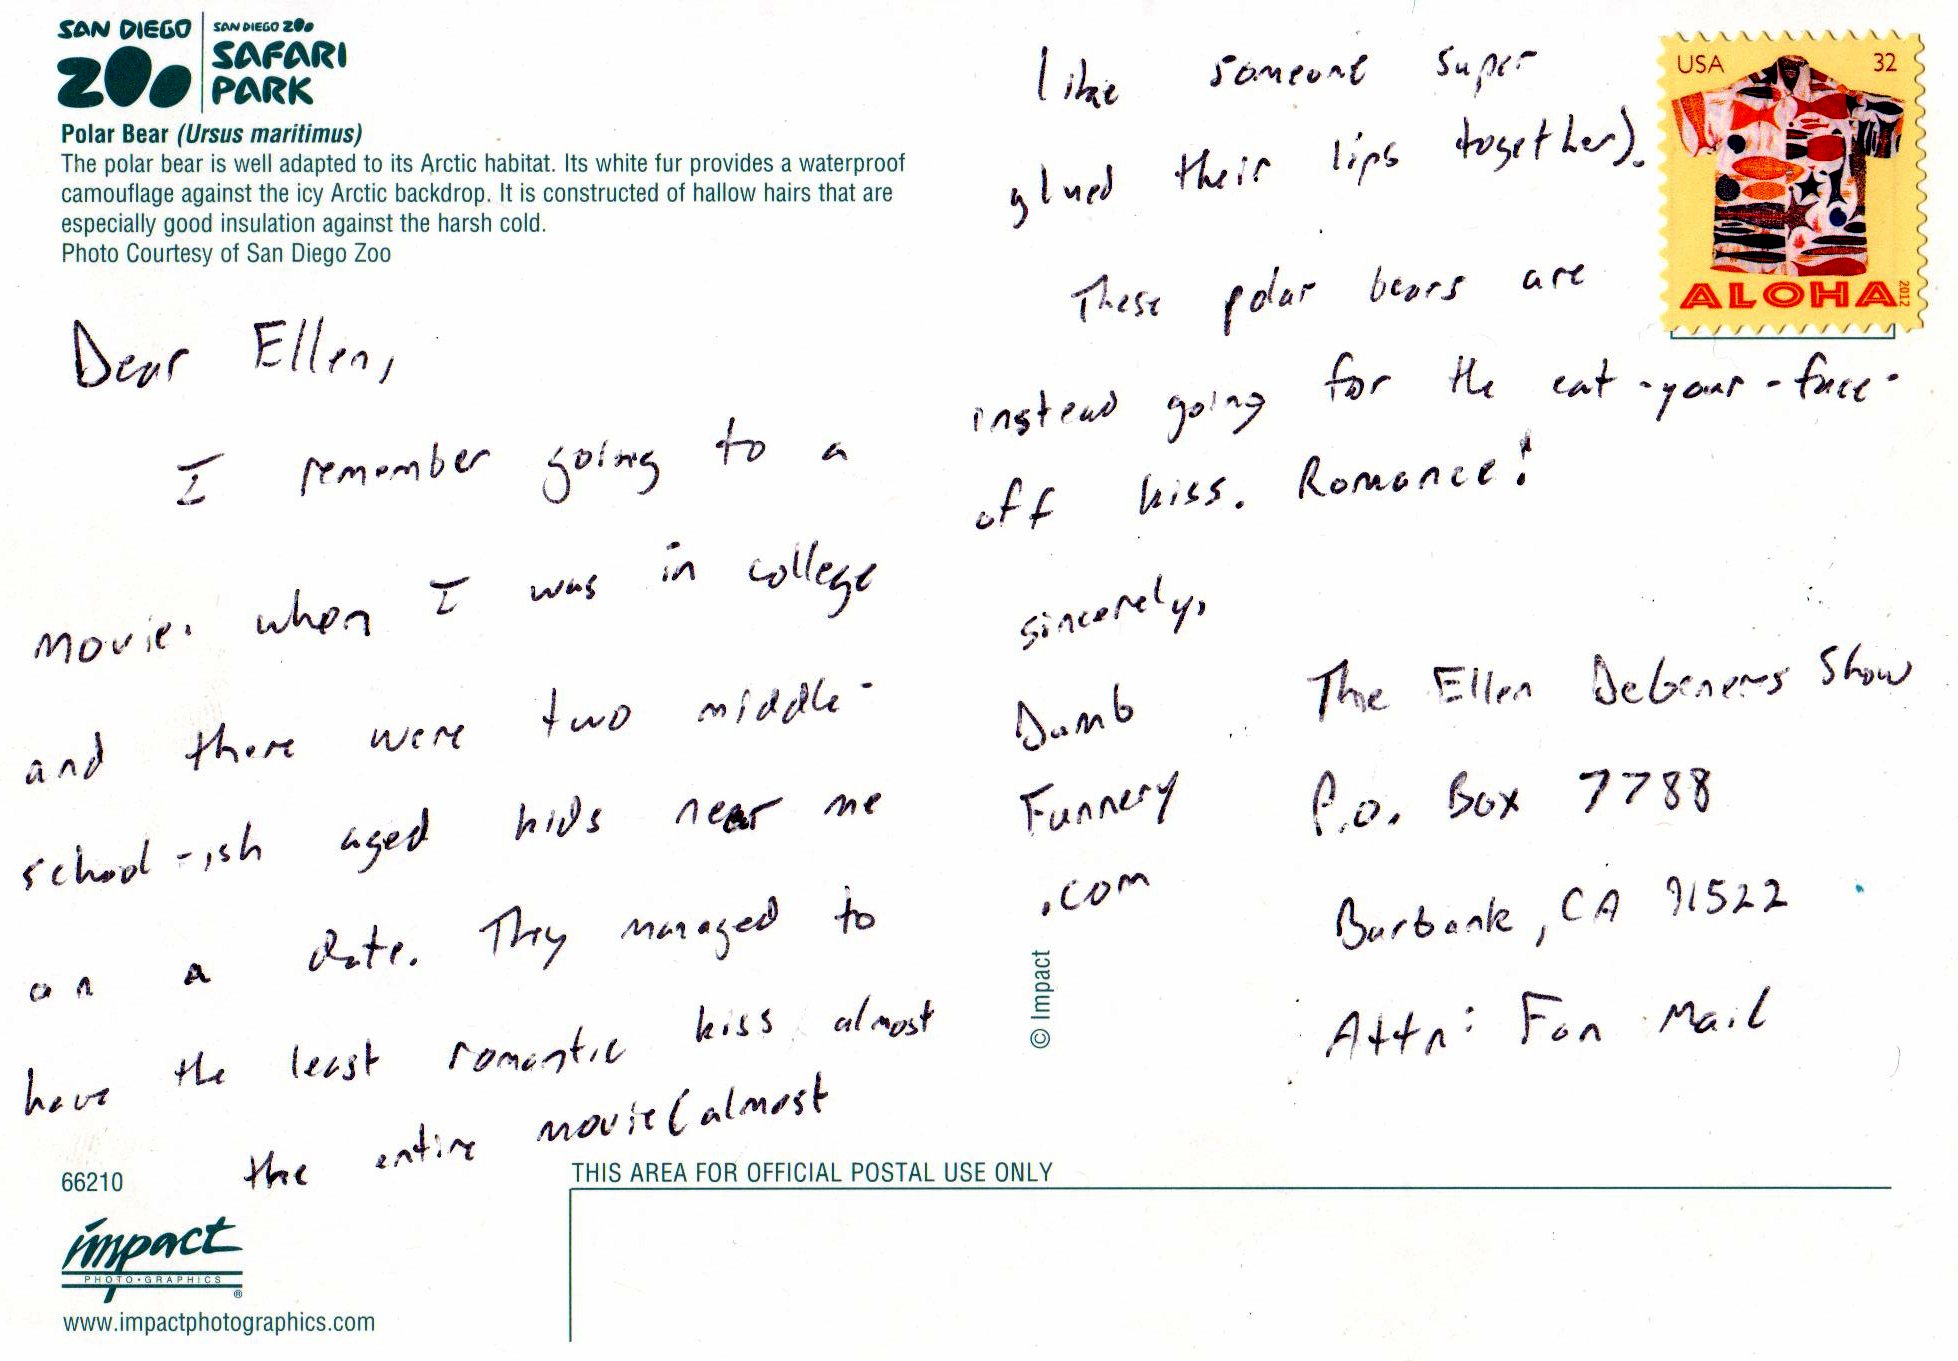 SAN DIEGO
ZOO
SAN DIEGO ZOO
SAFARI
PARK
Polar Bear (Ursus maritimus)
The polar bear is well adapted to its Arctic habitat. Its white fur provides a waterproof
camouflage against the icy Arctic backdrop. It is constructed of hallow hairs that are
especially good insulation against the harsh cold.
Photo Courtesy of San Diego Zoo
Dear Ellen,
I remember going to a
movie. when I was in college
and there were two middle-
school-ish aged kids near me
on a date. They managed to
have the least romantic kiss almost
the entire movie (almost
like someone super
glued their lips together).
These polar bears are
instead going for the eat-your-face-
off kiss. Romance!
sincerely,
Dumb
Funnery
.com
© Impact
USA 32
ALOHA
2012
The Ellen DeGeneres Show
P.O. Box 7788
Burbank, CA 91522
Attn: Fan Mail
66210
THIS AREA FOR OFFICIAL POSTAL USE ONLY
impact
PHOTO•GRAPHICS
®
www.impactphotographics.com